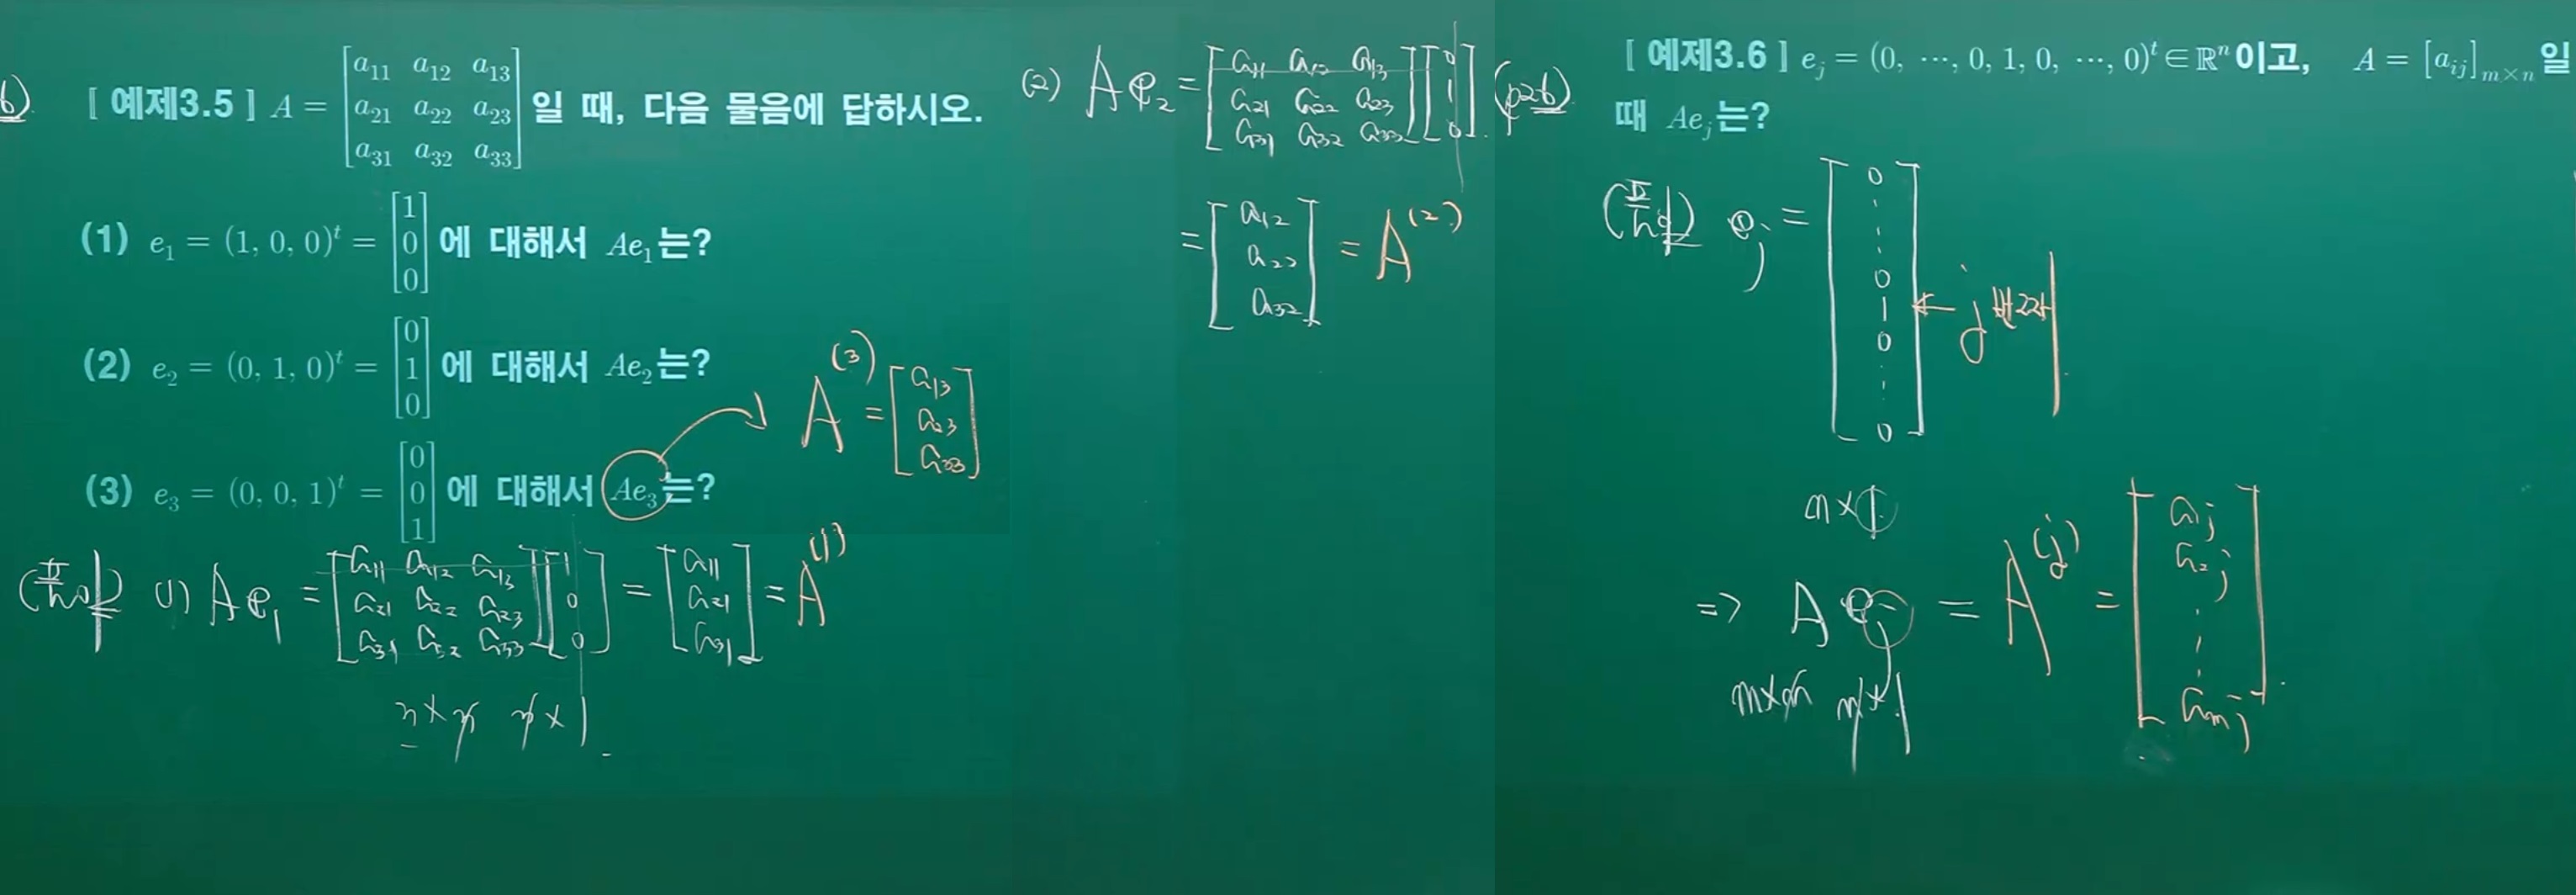 6)
[ 예제3.5 ] A = [a11 a12 a13; a21 a22 a23; a31 a32 a33] 일 때, 다음 물음에 답하시오.
(1) e1 = (1, 0, 0)^t = [1; 0; 0] 에 대해서 Ae1는?
(2) e2 = (0, 1, 0)^t = [0; 1; 0] 에 대해서 Ae2는?
(3) e3 = (0, 0, 1)^t = [0; 0; 1] 에 대해서 Ae3는?
A^(3) = [a13; a23; a33]
(풀이) (1) Ae1 = [a11 a12 a13; a21 a22 a23; a31 a32 a33][1; 0; 0] = [a11; a21; a31] = A^(1)
(2) Ae2 = [a11 a12 a13; a21 a22 a23; a31 a32 a33][0; 1; 0].
= [a12; a22; a32] = A^(2)
(p26)
[ 예제3.6 ] ej = (0, ⋯, 0, 1, 0, ⋯, 0)^t ∈ ℝ^n이고, A = [aij]m×n 일
때 Aej는?
(풀이) ej = [0; ⋮; 0; 1; 0; ⋮; 0] ← j번째
m×1
=> Aej = A^(j) = [a1j; a2j; ⋮; amj].
m×n n×1